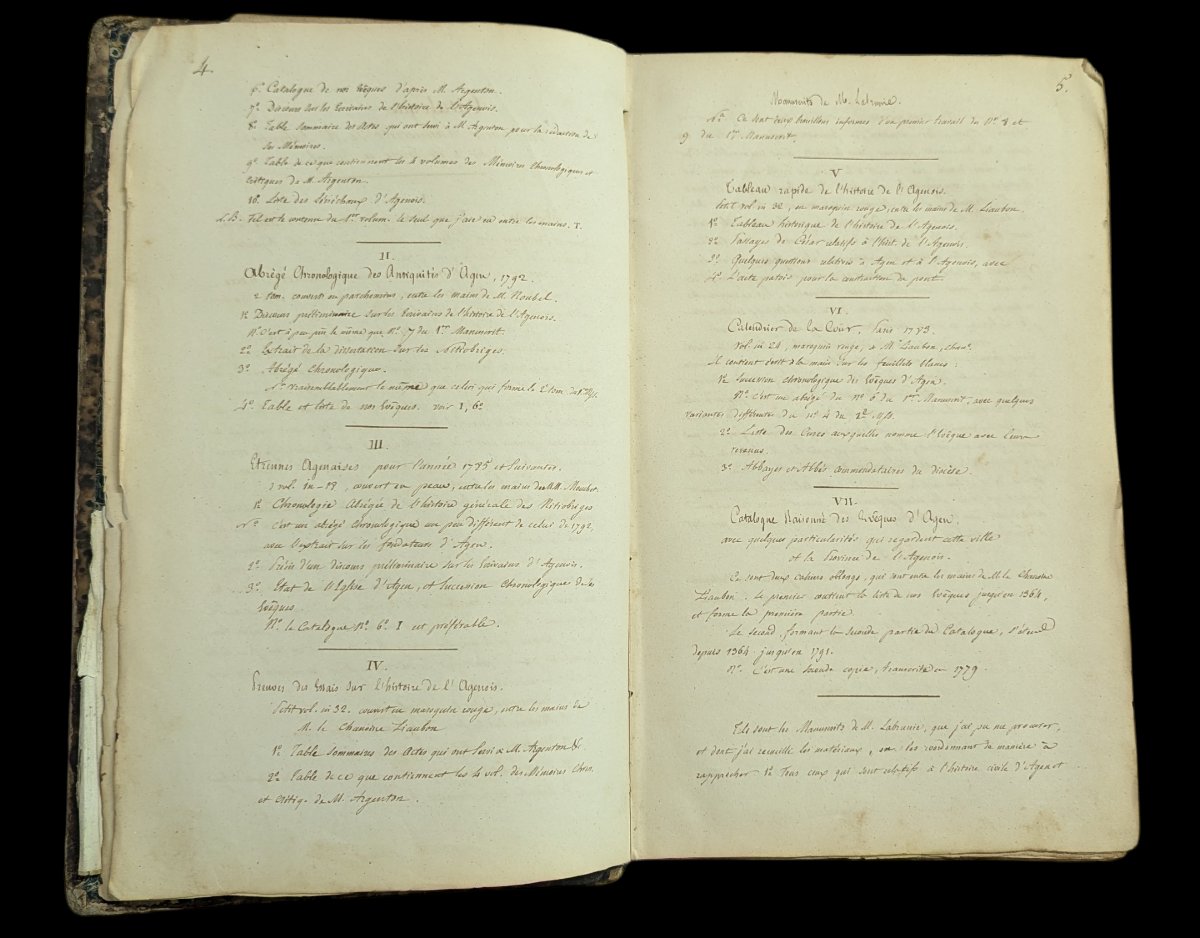 4.
6º Catalogue de nos Evêques d'après M. Argenton.
7º Discours sur les Ecrivains de l'histoire de l'Agenois.
8º Table sommaire des Actes qui ont servi à M. Argenton pour la rédaction de
ses Mémoires.
9º Table de ce que contiennent les 4 volumes des Mémoires Chronologiques et
critiques de M. Argenton.
10º Liste des Sénéchaux d'Agenois.
N.B. Tel est le contenu du 1er volum. le seul que j'aie eu entre les mains. T.
II.
Abrégé Chronologique des Antiquités d'Agen, 1792.
2 tom. couverts en parchemin, entre les mains de M. Noubel.
1º Discours préliminaire sur les Ecrivains de l'histoire de l'Agenois.
Nª C'est à peu près le même que Nº 7 du 1er Manuscrit.
2º Extrait de la dissertation sur les Nitiobriges.
3º Abrégé Chronologique.
Nª Vraisemblablement le même que celui qui forme le 2 tom. du 1er Mss.
4º Table et liste de nos Evêques. voir I, 6º
III.
Etrennes Agenaises pour l'année 1785 et suivantes.
vol. in-18, couvert en peau, entre les mains de M.
1º Chronologie Abrégée de l'histoire générale des Nitiobriges
Nª c'est un abrégé chronologique un peu différent de celui de 1792,
avec l'extrait sur les fondateurs d'Agen.
2º Précis d'un discours préliminaire sur les Ecrivains d'Agenois.
3º Etat de l'Eglise d'Agen, et succession Chronologique de les
Evêques.
Nª le Catalogue Nº 6º I est préférable.
IV.
Preuves des Essais sur l'histoire de l'Agenois.
Petit vol. in 32. couvert en maroquin rouge, entre les mains de
M. le Chanoine Liaubon
1º Table Sommaire des Actes qui ont servi à M. Argenton &.
2º Table de ce que contiennent les 4 vol. des Mémoires Chron.
et critiq. de M. Argenton.
5.
Manuscrits de M. Labrunie.
Nª Ce sont deux brouillons informes d'un premier travail du Nº 8 et
9 du 1er Manuscrit.
V
Tableau rapide de l'histoire de l'Agenois.
Petit vol. in 32, en maroquin rouge, entre les mains de M. Liaubon.
1º Tableau historique de l'histoire de l'Agenois.
2º Passages de César relatifs à l'hist. de l'Agenois.
3º Quelques questions relatives à Agen et à l'Agenois, avec
4º L'acte patois pour la construction du pont.
VI.
Calendrier de la Cour, Paris 1783.
vol. in 24, maroquin rouge, à M. Liaubon, chan.
Il contient écrit à la main sur les feuillets blancs :
1º Succession chronologique des Evêques d'Agen.
Nª C'est un abrégé du nº 6 du 1er Manuscrit, avec quelques
variantes différentes du nº 4 du 2º Mss.
2º Liste des Cures auxquelles nomme l'Evêque avec leurs
revenus.
3º Abbayes et Abbés commendataires du diocèse.
VII.
Catalogue Raisonné des Evêques d'Agen,
avec quelques particularités qui regardent cette ville
et la Province de l'Agenois.
Ce sont deux cahiers oblongs, qui sont entre les mains de M. le Chanoine
Liaubon. Le premier contient la liste de nos Evêques jusqu'en 1364,
et forme la première partie.
Le second, formant la seconde partie du Catalogue, s'étend
depuis 1364 jusqu'en 1791.
Nª. C'est une seconde copie, transcrite en 1779.
Tels sont les Manuscrits de M. Labrunie, que j'ai pu me procurer,
et dont j'ai recueilli les matériaux, en les coordonnant de manière à
rapprocher 1º Tous ceux qui sont relatifs à l'histoire civile d'Agen et